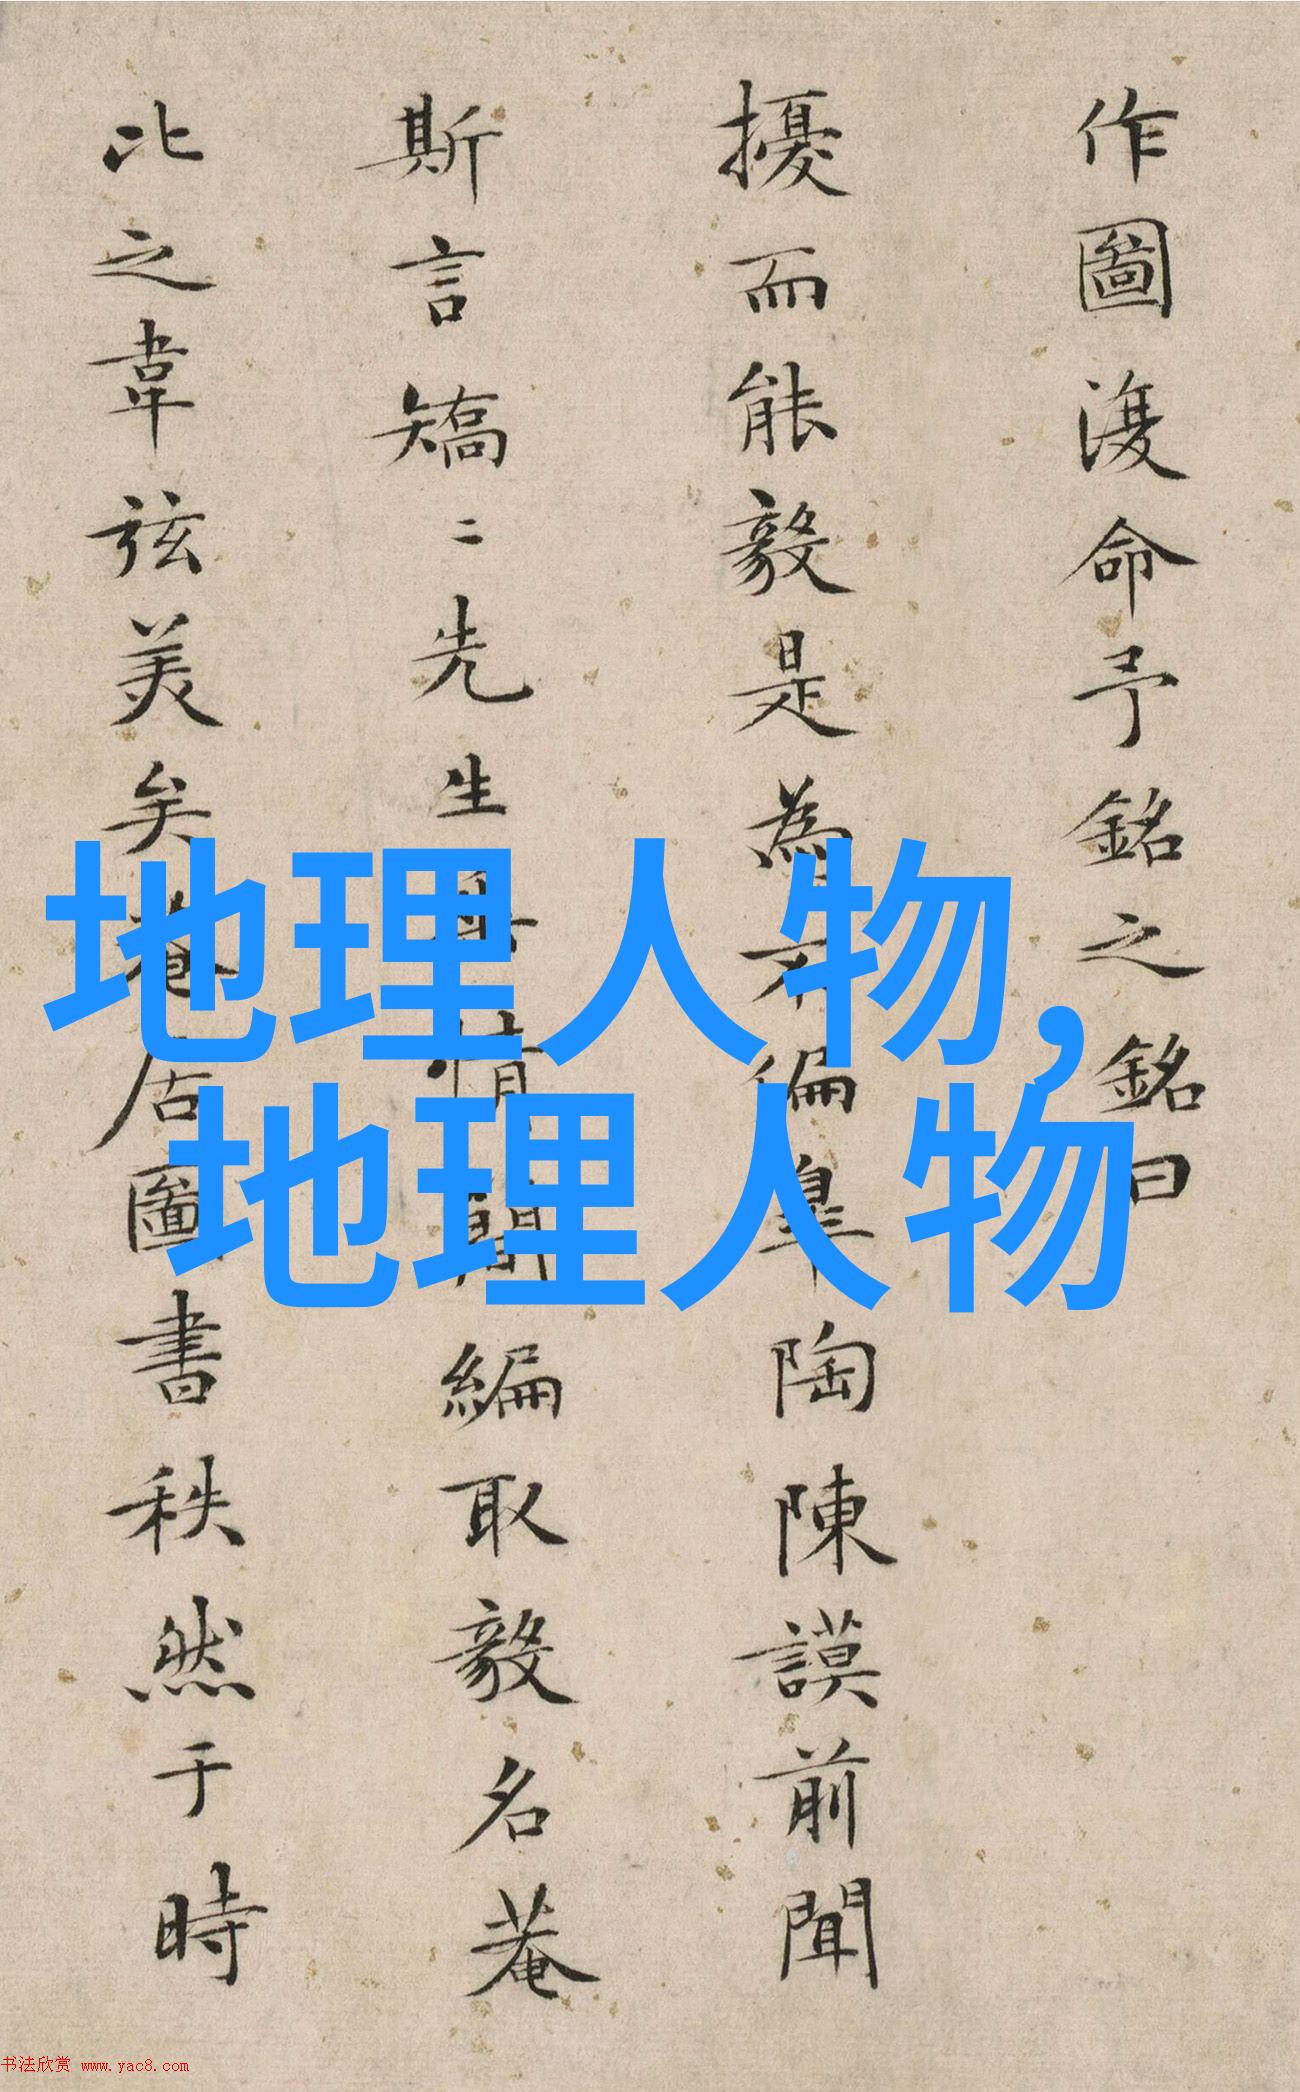 作圖復命予銘之銘曰
擾而能毅是為不偏皐陶陳謨前聞
斯言矯二先生性簡編取毅名菴
比之韋弦美矣菴居圖書秩然于時
地理人物,
地理人物
书法欣赏 www.yac8.com